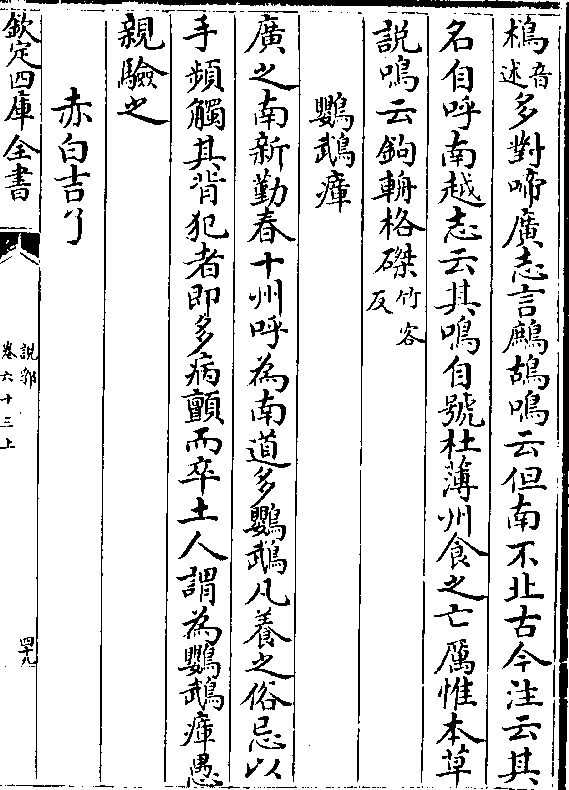 㭐音述多對啼廣志言鷓鴣鳴云但南不北古今注云其
名自呼南越志云其鳴自號杜薄州食之亡厲惟本草
説鳴云鉤輈格磔竹客反
鸚鵡瘴
廣之南新勤春十州呼為南道多鸚鵡凡養之俗忌以
手頻觸其背犯者即多病顫而卒土人謂為鸚鵡瘴愚
親驗之
赤白吉了
欽定四庫全書
説郛
卷六十三上
四九